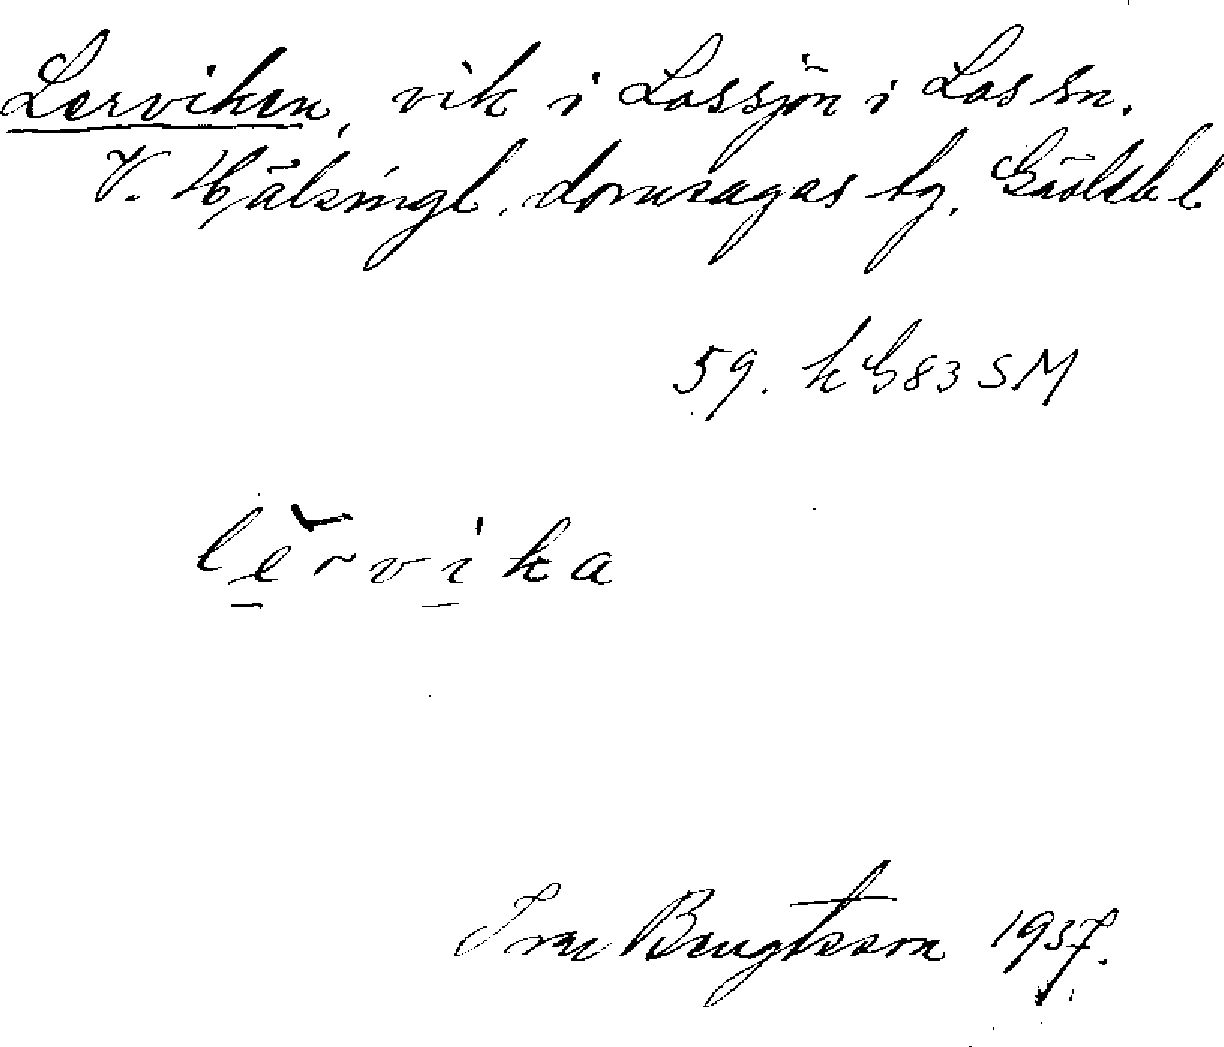 Lerviken, vik i Lossjön i Los sn.
V. Hälsingl. domsagas tg. Gävleb. l
59. k G83 SM
lervika
Ivar Bengtsson 1937.